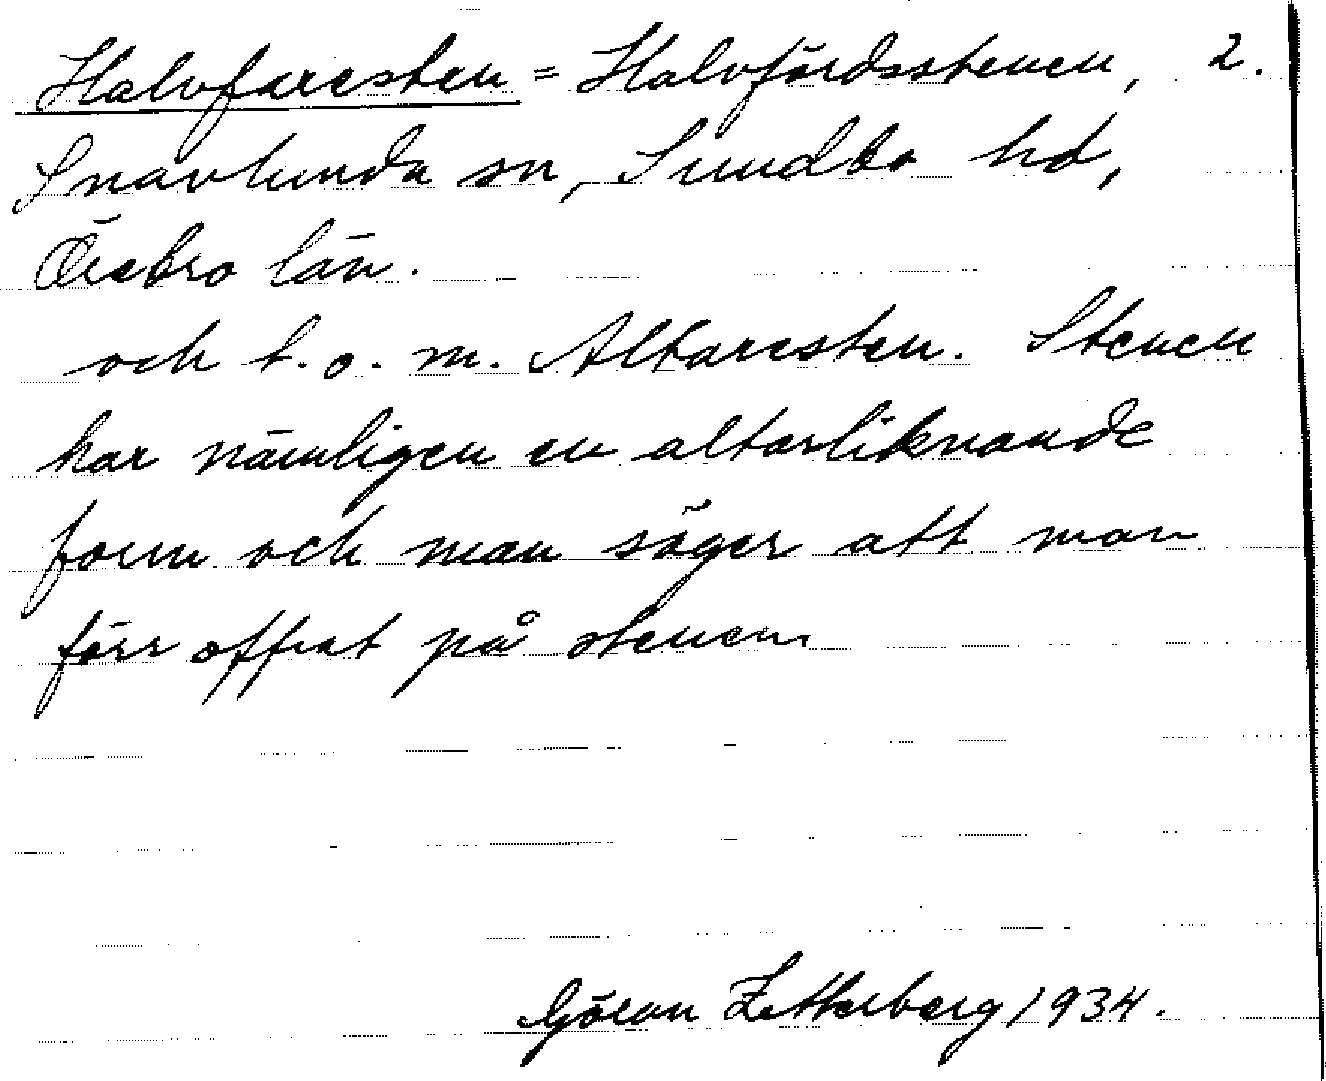 Halvfaresten = Halvfärdsstenen, 2.
Snavlunda sn, Sundbo hd,
Örebro län.
och t.o.m. Altaresten. Stenen
har nämligen en altarliknande
form och man säger att man
förr offrat på stenen
Göran Zetterberg 1934.